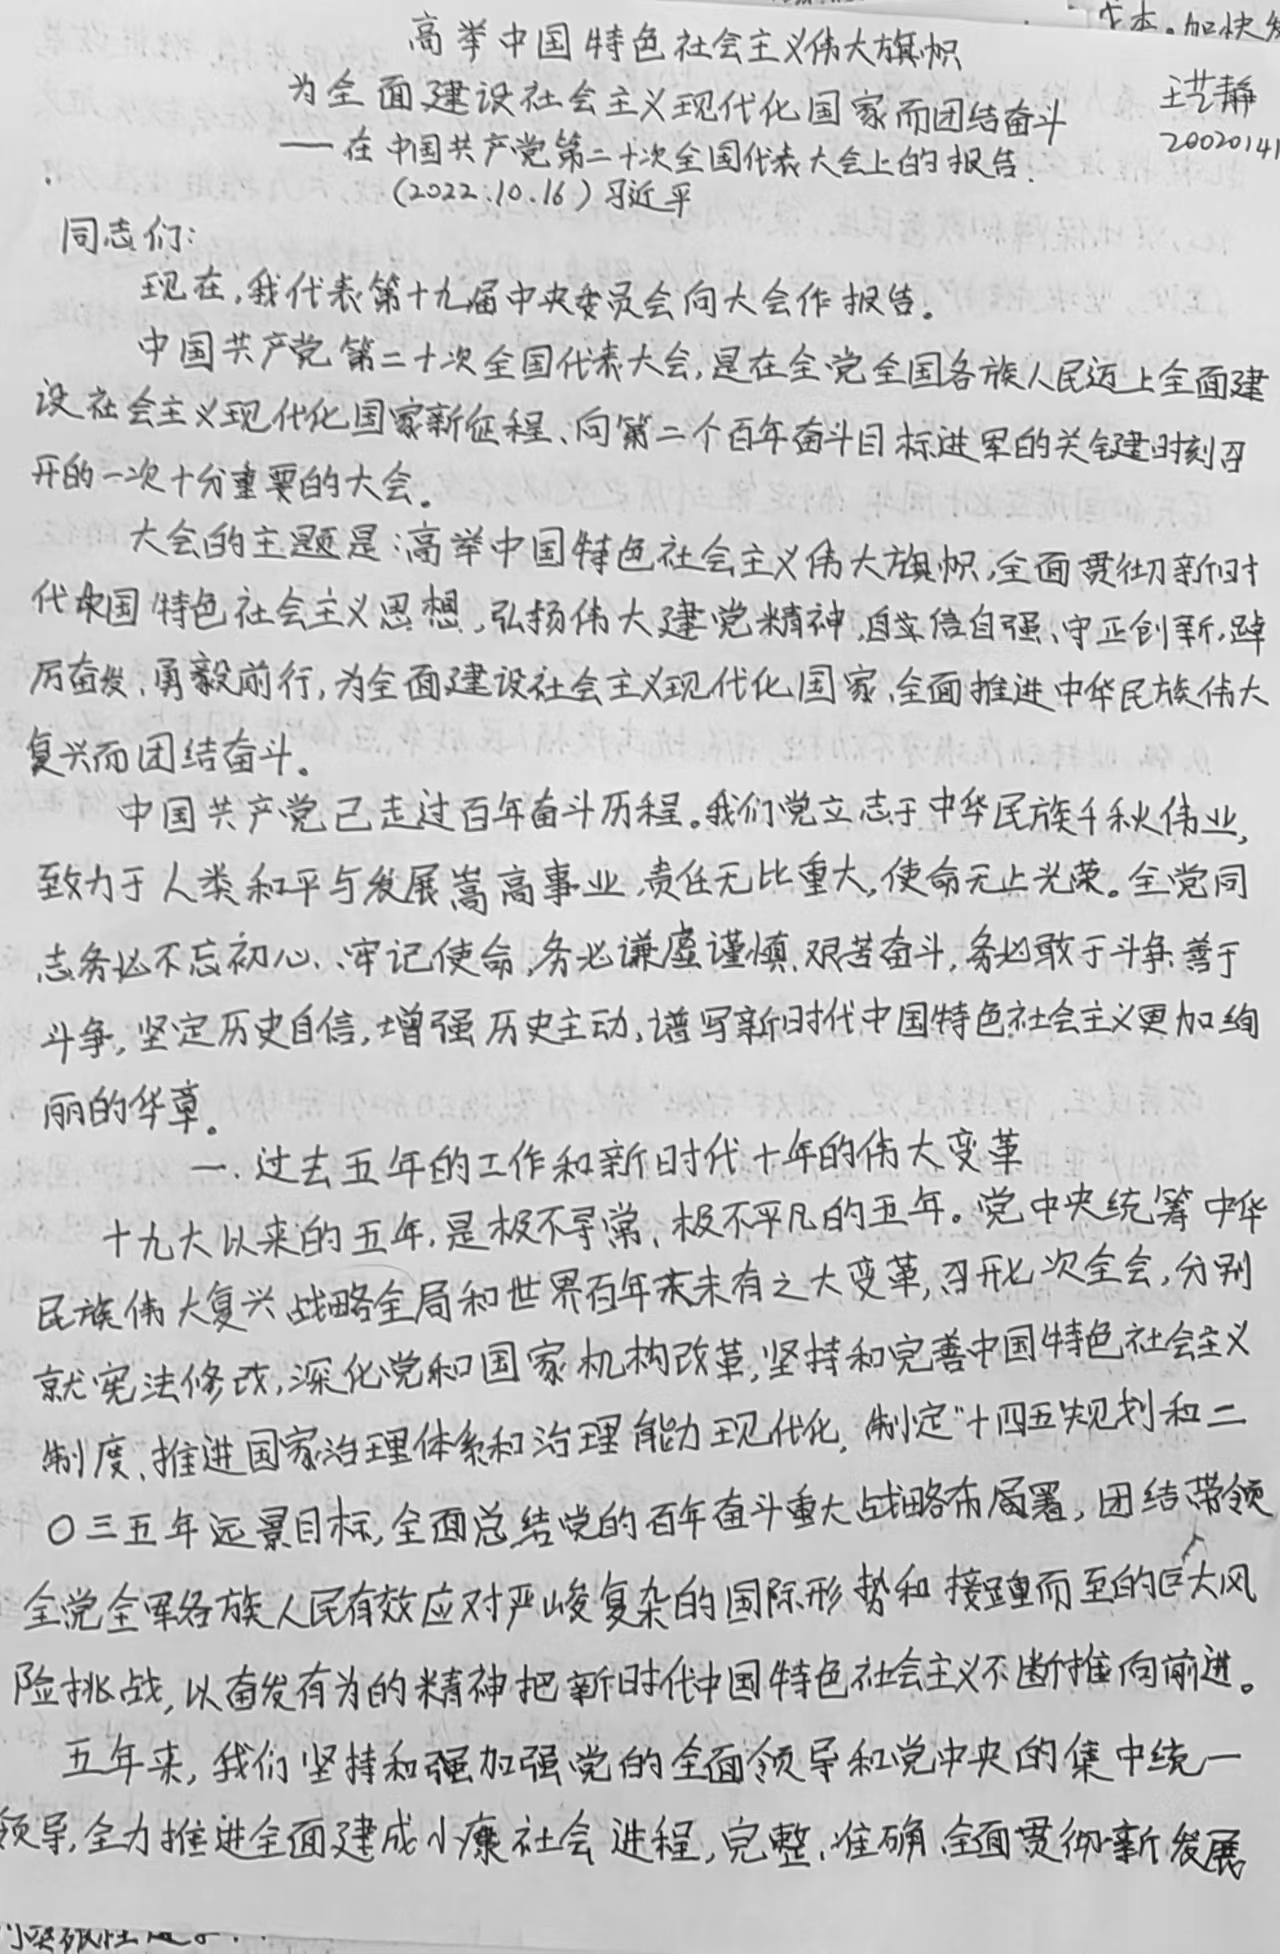 高举中国特色社会主义伟大旗帜
为全面建设社会主义现代化国家而团结奋斗
王艺静
20020141
——在中国共产党第二十次全国代表大会上的报告.
(2022.10.16)习近平
同志们:
现在,我代表第十九届中央委员会向大会作报告。
中国共产党第二十次全国代表大会,是在全党全国各族人民迈上全面建
设社会主义现代化国家新征程、向第二个百年奋斗目标进军的关键时刻召
开的一次十分重要的大会。
大会的主题是:高举中国特色社会主义伟大旗帜,全面贯彻新时
代中国特色社会主义思想,弘扬伟大建党精神,自信自强、守正创新,踔
厉奋发、勇毅前行,为全面建设社会主义现代化国家、全面推进中华民族伟大
复兴而团结奋斗。
中国共产党已走过百年奋斗历程。我们党立志于中华民族千秋伟业,
致力于人类和平与发展嵩高事业,责任无比重大,使命无上光荣。全党同
志务必不忘初心、牢记使命,务必谦虚谨慎、艰苦奋斗,务必敢于斗争、善于
斗争,坚定历史自信,增强历史主动,谱写新时代中国特色社会主义更加绚
丽的华章。
一.过去五年的工作和新时代十年的伟大变革
十九大以来的五年,是极不寻常、极不平凡的五年。党中央统筹中华
民族伟大复兴战略全局和世界百年来未有之大变革,召开七次全会,分别
就宪法修改,深化党和国家机构改革,坚持和完善中国特色社会主义
制度、推进国家治理体系和治理能力现代化,制定"十四五"规划和二
〇三五年远景目标,全面总结党的百年奋斗重大战略布局署,团结带领
全党全军各族人民有效应对严峻复杂的国际形势和接踵而至的巨大风
险挑战,以奋发有为的精神把新时代中国特色社会主义不断推向前进。
五年来,我们坚持和强加强党的全面领导和党中央的集中统一
领导,全力推进全面建成小康社会进程,完整、准确、全面贯彻新发展